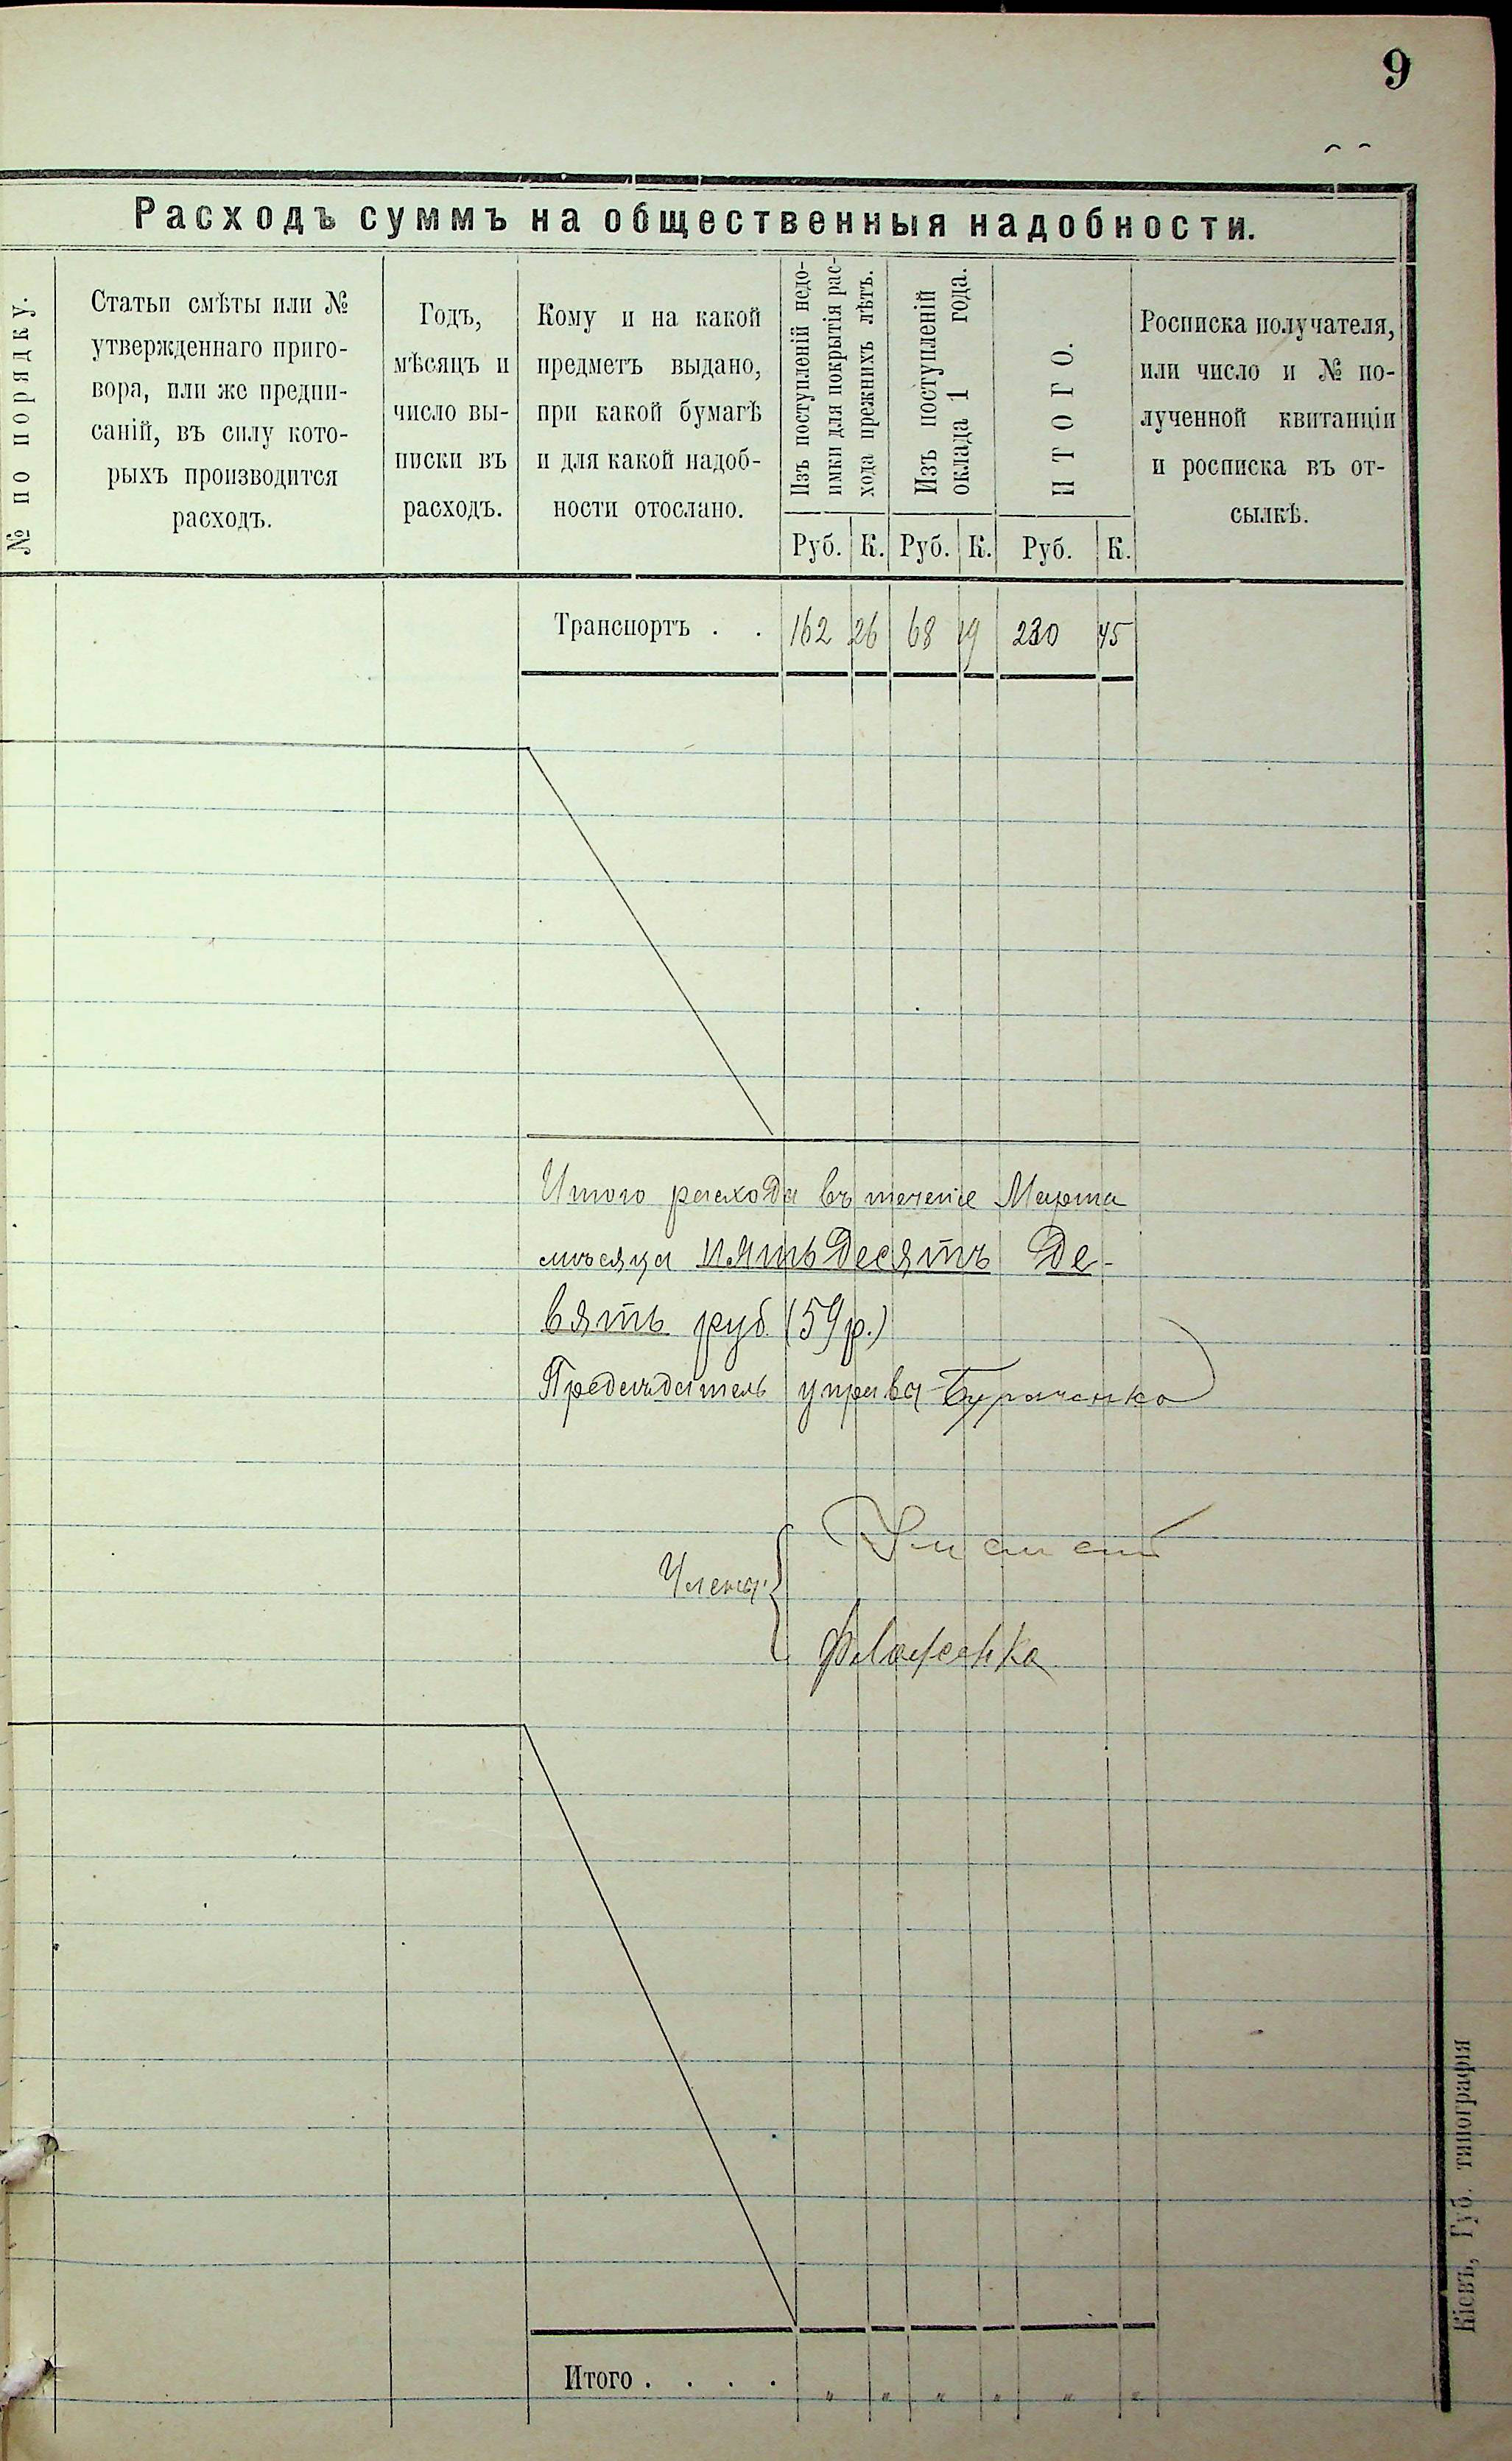 9
Расходъ суммъ на общественныя надобности.
№ по порядку.
Статьи смѣты или №
утвержденнаго приго-
вора, или же предпи-
саній, въ силу кото-
рыхъ производится
расходъ.
Годъ,
мѣсяцъ и
число вы-
писки въ
расходъ.
Кому и на какой
предметъ выдано,
при какой бумагѣ
и для какой надоб-
ности отослано.
Изъ поступленій недо-
имки для покрытія рас-
хода прежнихъ лѣтъ.
Изъ поступленій
оклада 1 года.
ИТОГО.
Росписка получателя,
или число и № по-
лученной квитанціи
и росписка въ от-
сылкѣ.
Руб. К. Руб. К. Руб. К.
Транспортъ . . 162 26 68 19 230 45
Итого расхода въ теченіе Марта
мѣсяца пятьдесятъ де-
вять руб. (59 р.)
Предсѣдатель управы Бураченко
Члены:
Итого . . . . " " " " " "
Кіевъ, Губ. типографія